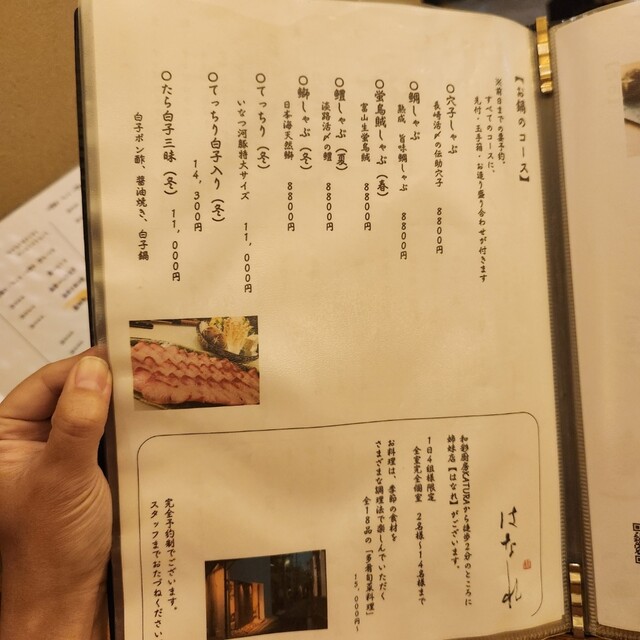 【お鍋のコース】
※前日までの要予約。
すべてのコースに、
先付・玉手箱・お造り盛り合わせが付きます
○穴子しゃぶ
長崎活〆の伝助穴子 8800円
○鯛しゃぶ
熟成 旨味鯛しゃぶ 8800円
○蛍烏賊しゃぶ(春)
富山生蛍烏賊 8800円
○鱧しゃぶ(夏)
淡路活〆の鱧 8800円
○鰤しゃぶ(冬)
日本海天然鰤 8800円
○てっちり(冬)
いなつ河豚特大サイズ 11,000円
○てっちり白子入り(冬)
14,300円
○たら白子三昧(冬) 11,000円
白子ポン酢、醤油焼き、白子鍋
はなれ
和彩厨房KATURAから徒歩2分のところに
姉妹店【はなれ】がございます。
1日4組様限定
全室完全個室 2名様〜14名様まで
お料理は、季節の食材を
さまざまな調理法で楽しんでいただく
全18品の「多肴旬菜料理」
15,000円〜
完全予約制でございます。
スタッフまでおたずねください